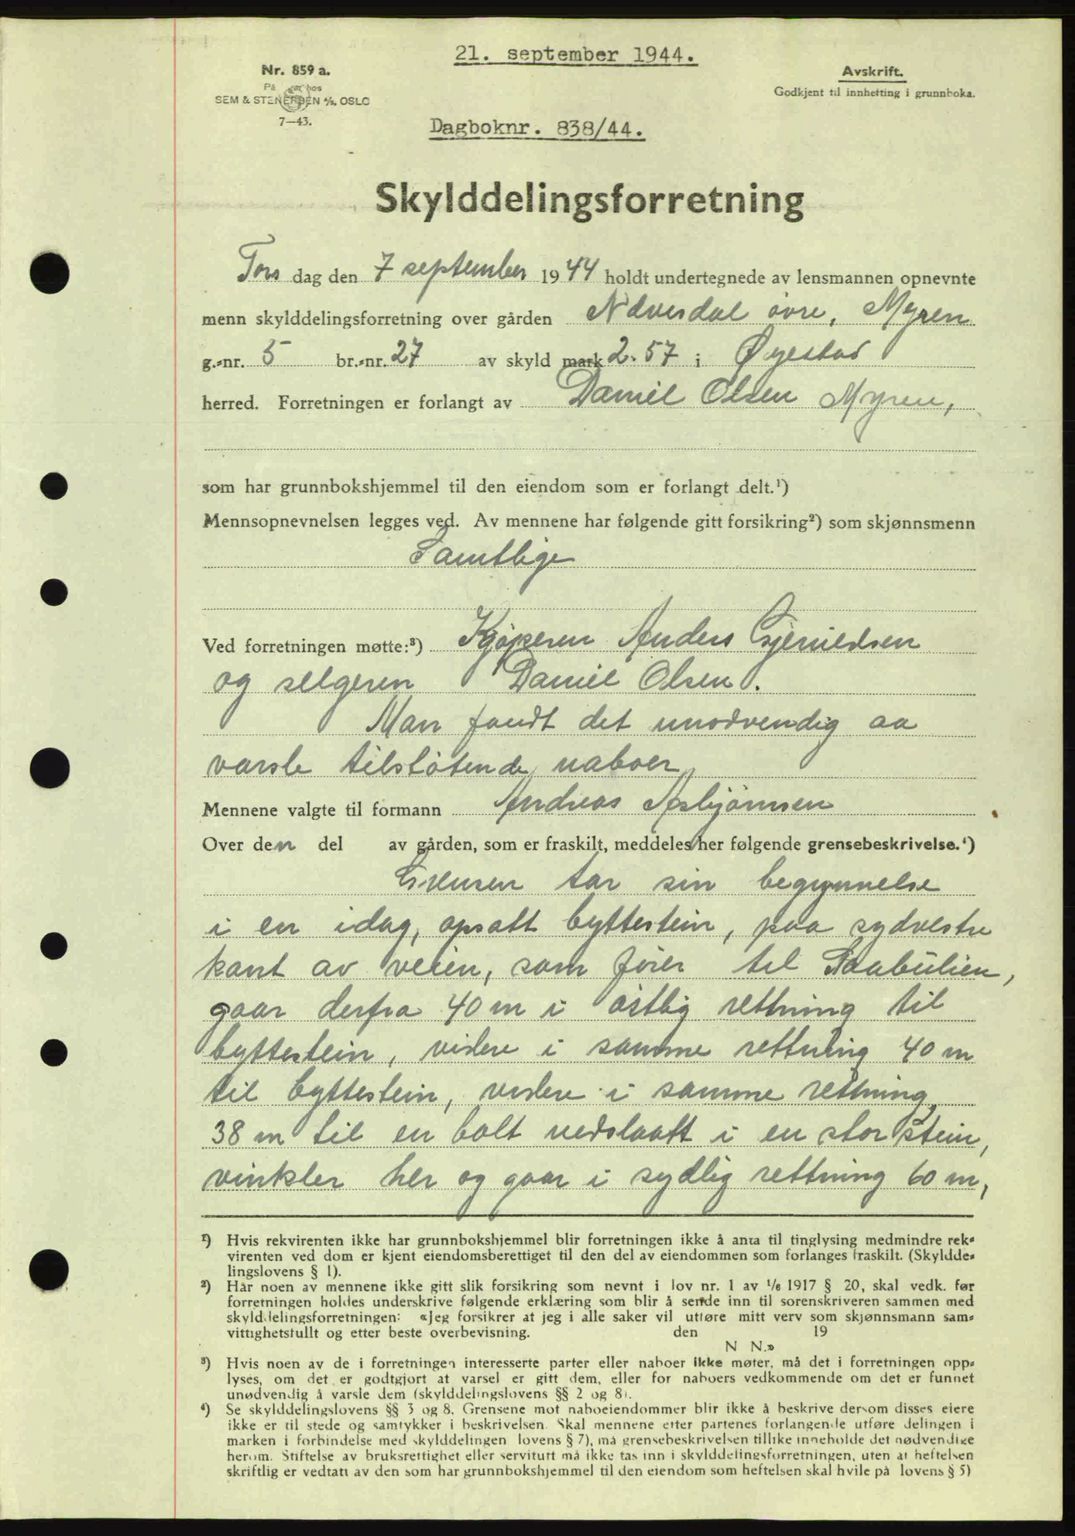 21. september 1944.
Nr. 859 a.
På hos
SEM & STENERSEN A/S, OSLO
7—43.
Avskrift.
Godkjent til innhefting i grunnboka.
Dagboknr. 838/44.
Skylddelingsforretning
Tors dag den 7 september 1944 holdt undertegnede av lensmannen opnevnte
menn skylddelingsforretning over gården Nævesdal øvre, Myren
g.-nr. 5 br.-nr. 27 av skyld mark 2.57 i Øyestad
herred. Forretningen er forlangt av Daniel Olsen Myren,
som har grunnbokshjemmel til den eiendom som er forlangt delt.¹)
Mennsopnevnelsen legges ved. Av mennene har følgende gitt forsikring²) som skjønnsmenn
Samtlige
Ved forretningen møtte:³) Kjøperen Anders
og selgeren Daniel Olsen.
Man fandt det unødvendig aa
varsle tilstøtende naboer
Mennene valgte til formann Andreas Asbjørnsen
Over den del av gården, som er fraskilt, meddeles her følgende grensebeskrivelse.⁴)
Grensen tar sin begynnelse
i en idag, opsatt byttestein, paa sydvestre
kant av veien, som fører til
gaar derfra 40 m i østlig rettning til
byttestein, videre i samme rettning 40 m
til byttestein, videre i samme rettning,
38 m til en bolt nedslaatt i en stor stein,
vinkler her og gaar i sydlig rettning 60 m,
¹) Hvis rekvirenten ikke har grunnbokshjemmel blir forretningen ikke å anta til tinglysing medmindre rek-
virenten ved dom er kjent eiendomsberettiget til den del av eiendommen som forlanges fraskilt. (Skyldde-
lingslovens § 1).
²) Har noen av mennene ikke gitt slik forsikring som nevnt i lov nr. 1 av 1/6 1917 § 20, skal vedk. før
forretningen holdes underskrive følgende erklæring som blir å sende inn til sorenskriveren sammen med
skylddelingsforretningen: «Jeg forsikrer at jeg i alle saker vil utføre mitt verv som skjønnsmann sam-
vittighetsfullt og etter beste overbevisning. den 19
N N.»
³) Hvis noen av de i forretningen interesserte parter eller naboer ikke møter, må det i forretningen opp-
lyses, om det er godtgjort at varsel er gitt dem, eller for naboers vedkommende om det er funnet
unødvendig å varsle dem (skylddelingslovens §§ 2 og 8).
⁴) Se skylddelingslovens §§ 3 og 8. Grensene mot naboeiendommer blir ikke å beskrive dersom disses eiere
ikke er til stede og samtykker i beskrivelsen. Skal mennene etter partenes forlangende utføre delingen i
marken i forbindelse med skylddelingen lovens § 7), må grensebeskrivelsen tillike inneholde det nødvendige
herom. Stiftelse av bruksrettighet eller servitutt må ikke tas inn i skylddelingsforretningen, uten at heftelsen
skriftlig er vedtatt av den som har grunnbokshjemmel til den eiendom som heftelsen skal hvile på lovens § 5)